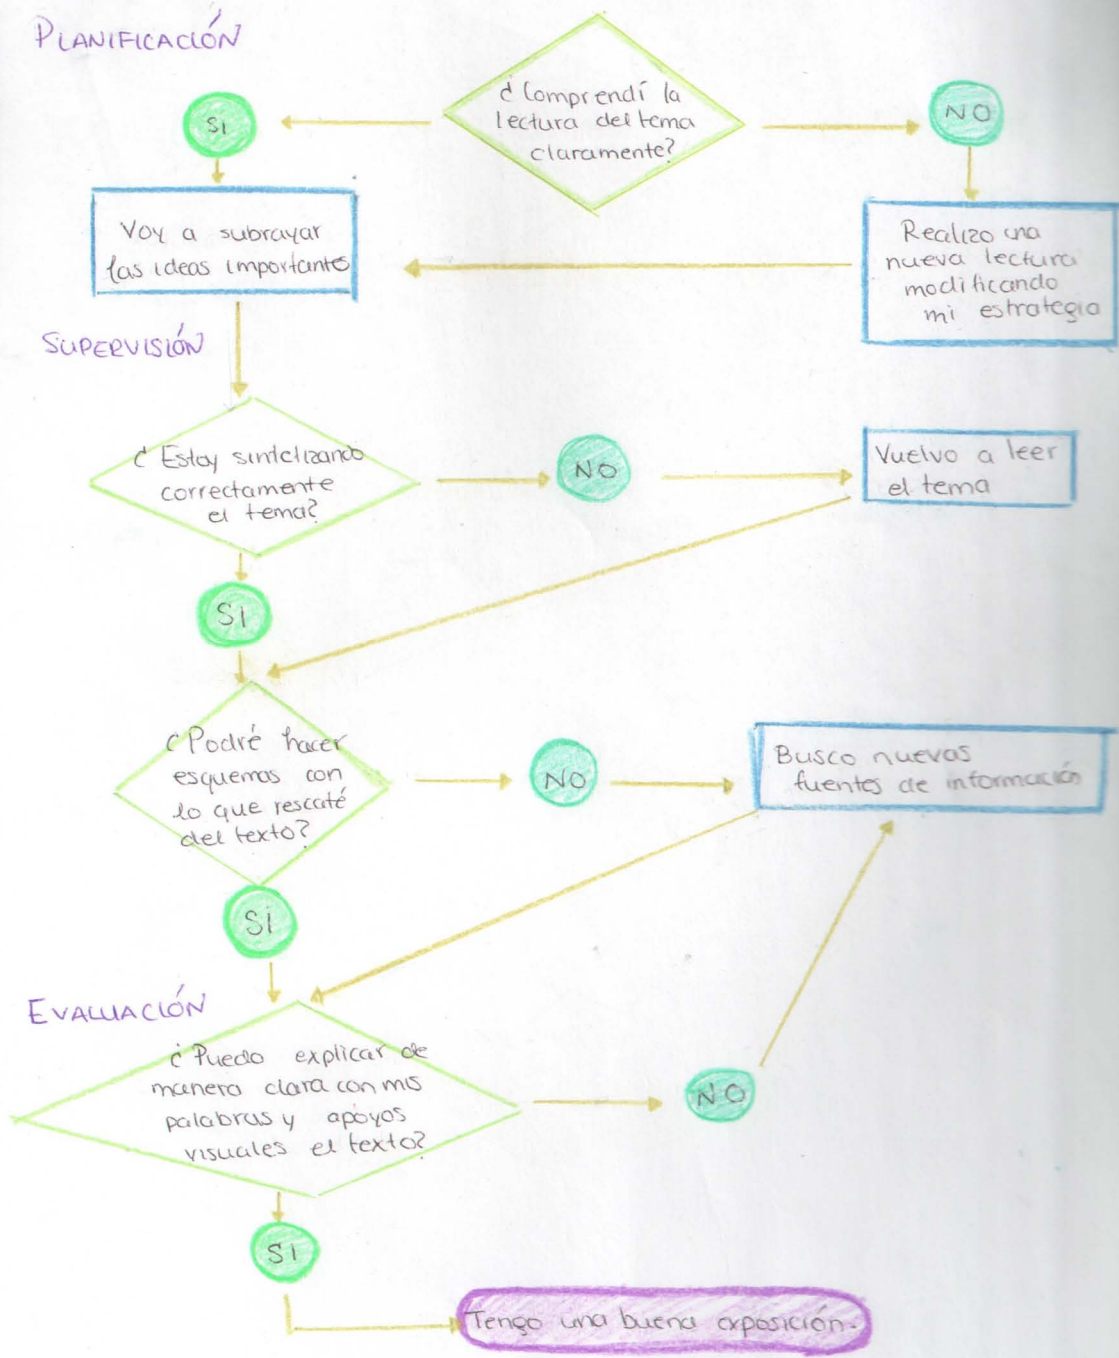 PLANIFICACIÓN
¿Comprendí la
lectura del tema
claramente?
SI
NO
Voy a subrayar
las ideas importantes
Realizo una
nueva lectura
modificando
mi estrategia
SUPERVISIÓN
¿Estoy sintetizando
correctamente
el tema?
NO
Vuelvo a leer
el tema
SI
¿Podré hacer
esquemas con
lo que rescaté
del texto?
NO
Busco nuevas
fuentes de información
SI
EVALUACIÓN
¿Puedo explicar de
manera clara con mis
palabras y apoyos
visuales el texto?
NO
SI
Tengo una buena exposición.